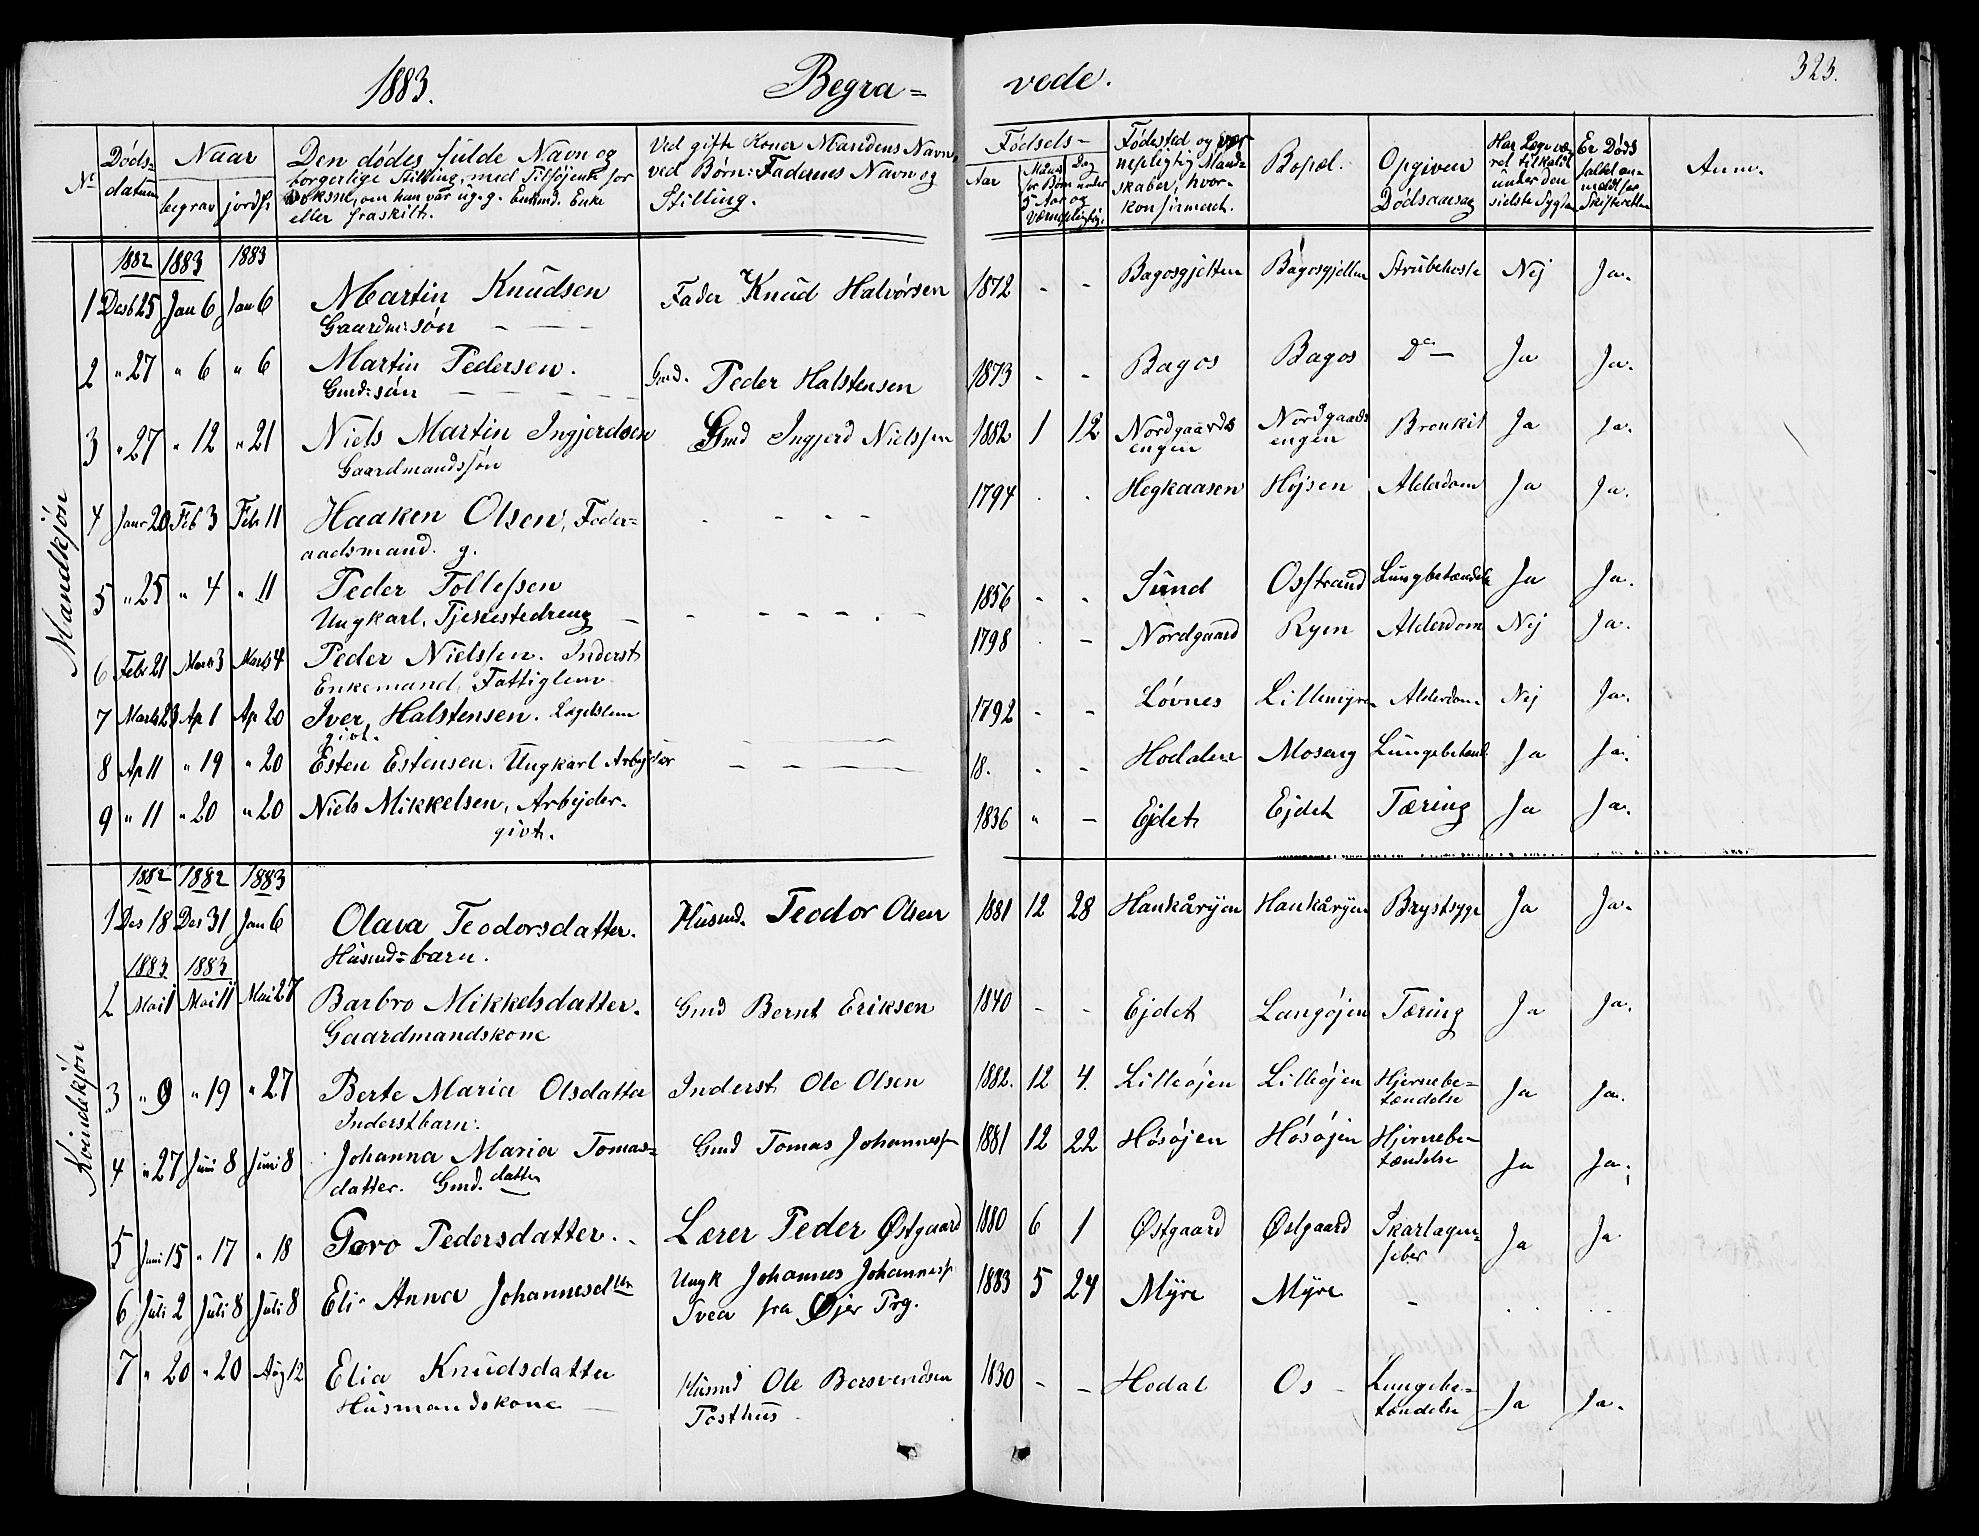 1883. Begra= vede. 323.
No Døds-datum Naar begrav jordf. Den dødes fulde Navn og borgerlige Stilling, med Tilføjende for voksne, om han var ug. g. Enkmd. Enke eller fraskilt. Ved gifte Koner Mandens Navn, ved Børn: Faderens Navn og Stilling. Fødsels- Aar Maaned for Børn under 5 Aar og Værnepligtig. Dag Fødested og vær-nepligtig Mand-skaber, hvor-konfirmeret. Bopæl. Opgiven Dødsaarsag Har Læge væ-ret tilkaldt under den sidste Sygdom Er Døds-faldet an-meldt for Skifteretten Anm.
Mandkjøn
1882 1883 1883
1 Desb 25 Jan 6 Jan 6 Martin Knudsen Fader Knud Halvorsen 1872 - - Bagosgjelten Bagosgjelten Strubehoste Nej Ja.
Gaardm: søn - - -
2 " 27 " 6 " 6 Martin Pedersen. Gmd. Peder Halstensen 1873 - - Bagos Bagos Do — Ja Ja.
Gmd: søn
3 " 27 " 12 " 21 Niels Martin Ingjerdsen Gmd Ingjerd Nielssen 1882 1 12 Nordgaards Nordgaards Bronkit Ja Ja.
Gaardmandssøn engen engen
4 Janr 20 Feb 3 Feb 11 Haaken Olsen, Føder= - - - - 1794 . . Hegkaasen Hÿsen Alderdom Ja Ja.
aadsmand. g.
5 " 25 " 4 " 11 Peder Tollefssen 1856 - - Sund Osstrand Lungbetændels Ja Ja.
Ungkarl, Tjenestedreng
6 Febr 21 Marts 3 Marts 4 Peder Nielssen. Inderst 1798 . - Nordgaard Ryen Alderdom Nej Ja.
Enkemand, Fattiglem
7 Marts 23 Ap 1 Ap 20 Iver Halstensen. Lægdslem 1792 - - Løvnes Lillemyren Alderdom Nej Ja.
givt.
8 Ap 11 " 19 " 20 Esten Estensen. Ungkarl Arbejder 18. . - Hodalen Moseng Lungebetænd Ja Ja.
9 " 11 " 20 " 20 Niels Mikkelsen, Arbejder. 1836 " - Ejdet Ejdet Tæring Ja Ja.
givt.
Kvindekjøn
1882 1882 1883
1 Des 18 Des 31 Jan 6 Olava Teodorsdatter. Husmd. Teodor Olsen 1881 12 28 Hankårÿen Hankårÿen Brystsyge Ja Ja.
Husmd=barn.
1883 1883
2 Mai 1 Mai 11 Mai 27 Barbro Mikkelsdatter. Gmd Bernt Eriksen 1840 - - Ejdet Langøjen Tæring Ja Ja.
Gaardmandskone
3 " 9 " 19 " 27 Berte Maria Olsdatter Inderst Ole Olsen 1882. 12 4. Lilleøjen Lilleøjen Hjernebe=
Inderstbarn. tændelse Ja Ja.
4 " 27 Juni 8 Juni 8 Johanna Maria Tomas= Gmd Tomas Johanness 1881 12 22 Høsøjen Høsøjen Hjernebe=
datter. Gmd. datter tændelse Ja Ja.
5 Juni 15 " 17 " 18 Goro Pedersdatter. Lærer Peder Østgaard 1880 6 1 Østgaard Østgaard Skarlagen=
feber Ja Ja
6 Juli 2 Juli 8 Juli 8 Eli Anna Johannesdtr Ungk Johannes Johanness 1883 5 24 Mÿre Mÿre - . . . .
Tvea fra Øjer Prg.
7 " 20 " 20 Aug 12 Elia Knudsdatter Husmd Ole Bersvendsen 1830 - - Hodal Os - Lungebe=
Husmandskone Posthus tændelse Ja Ja.